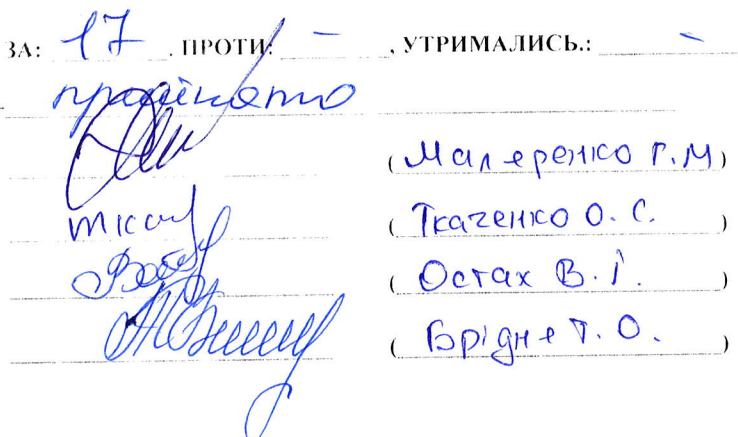 ЗА: 17 . ПРОТИ: – , УТРИМАЛИСЬ.: –
прийнято
( Маляренко Г.М )
( Ткаченко О. С. )
( Остах В. І. )
( Брідня Т. О. )